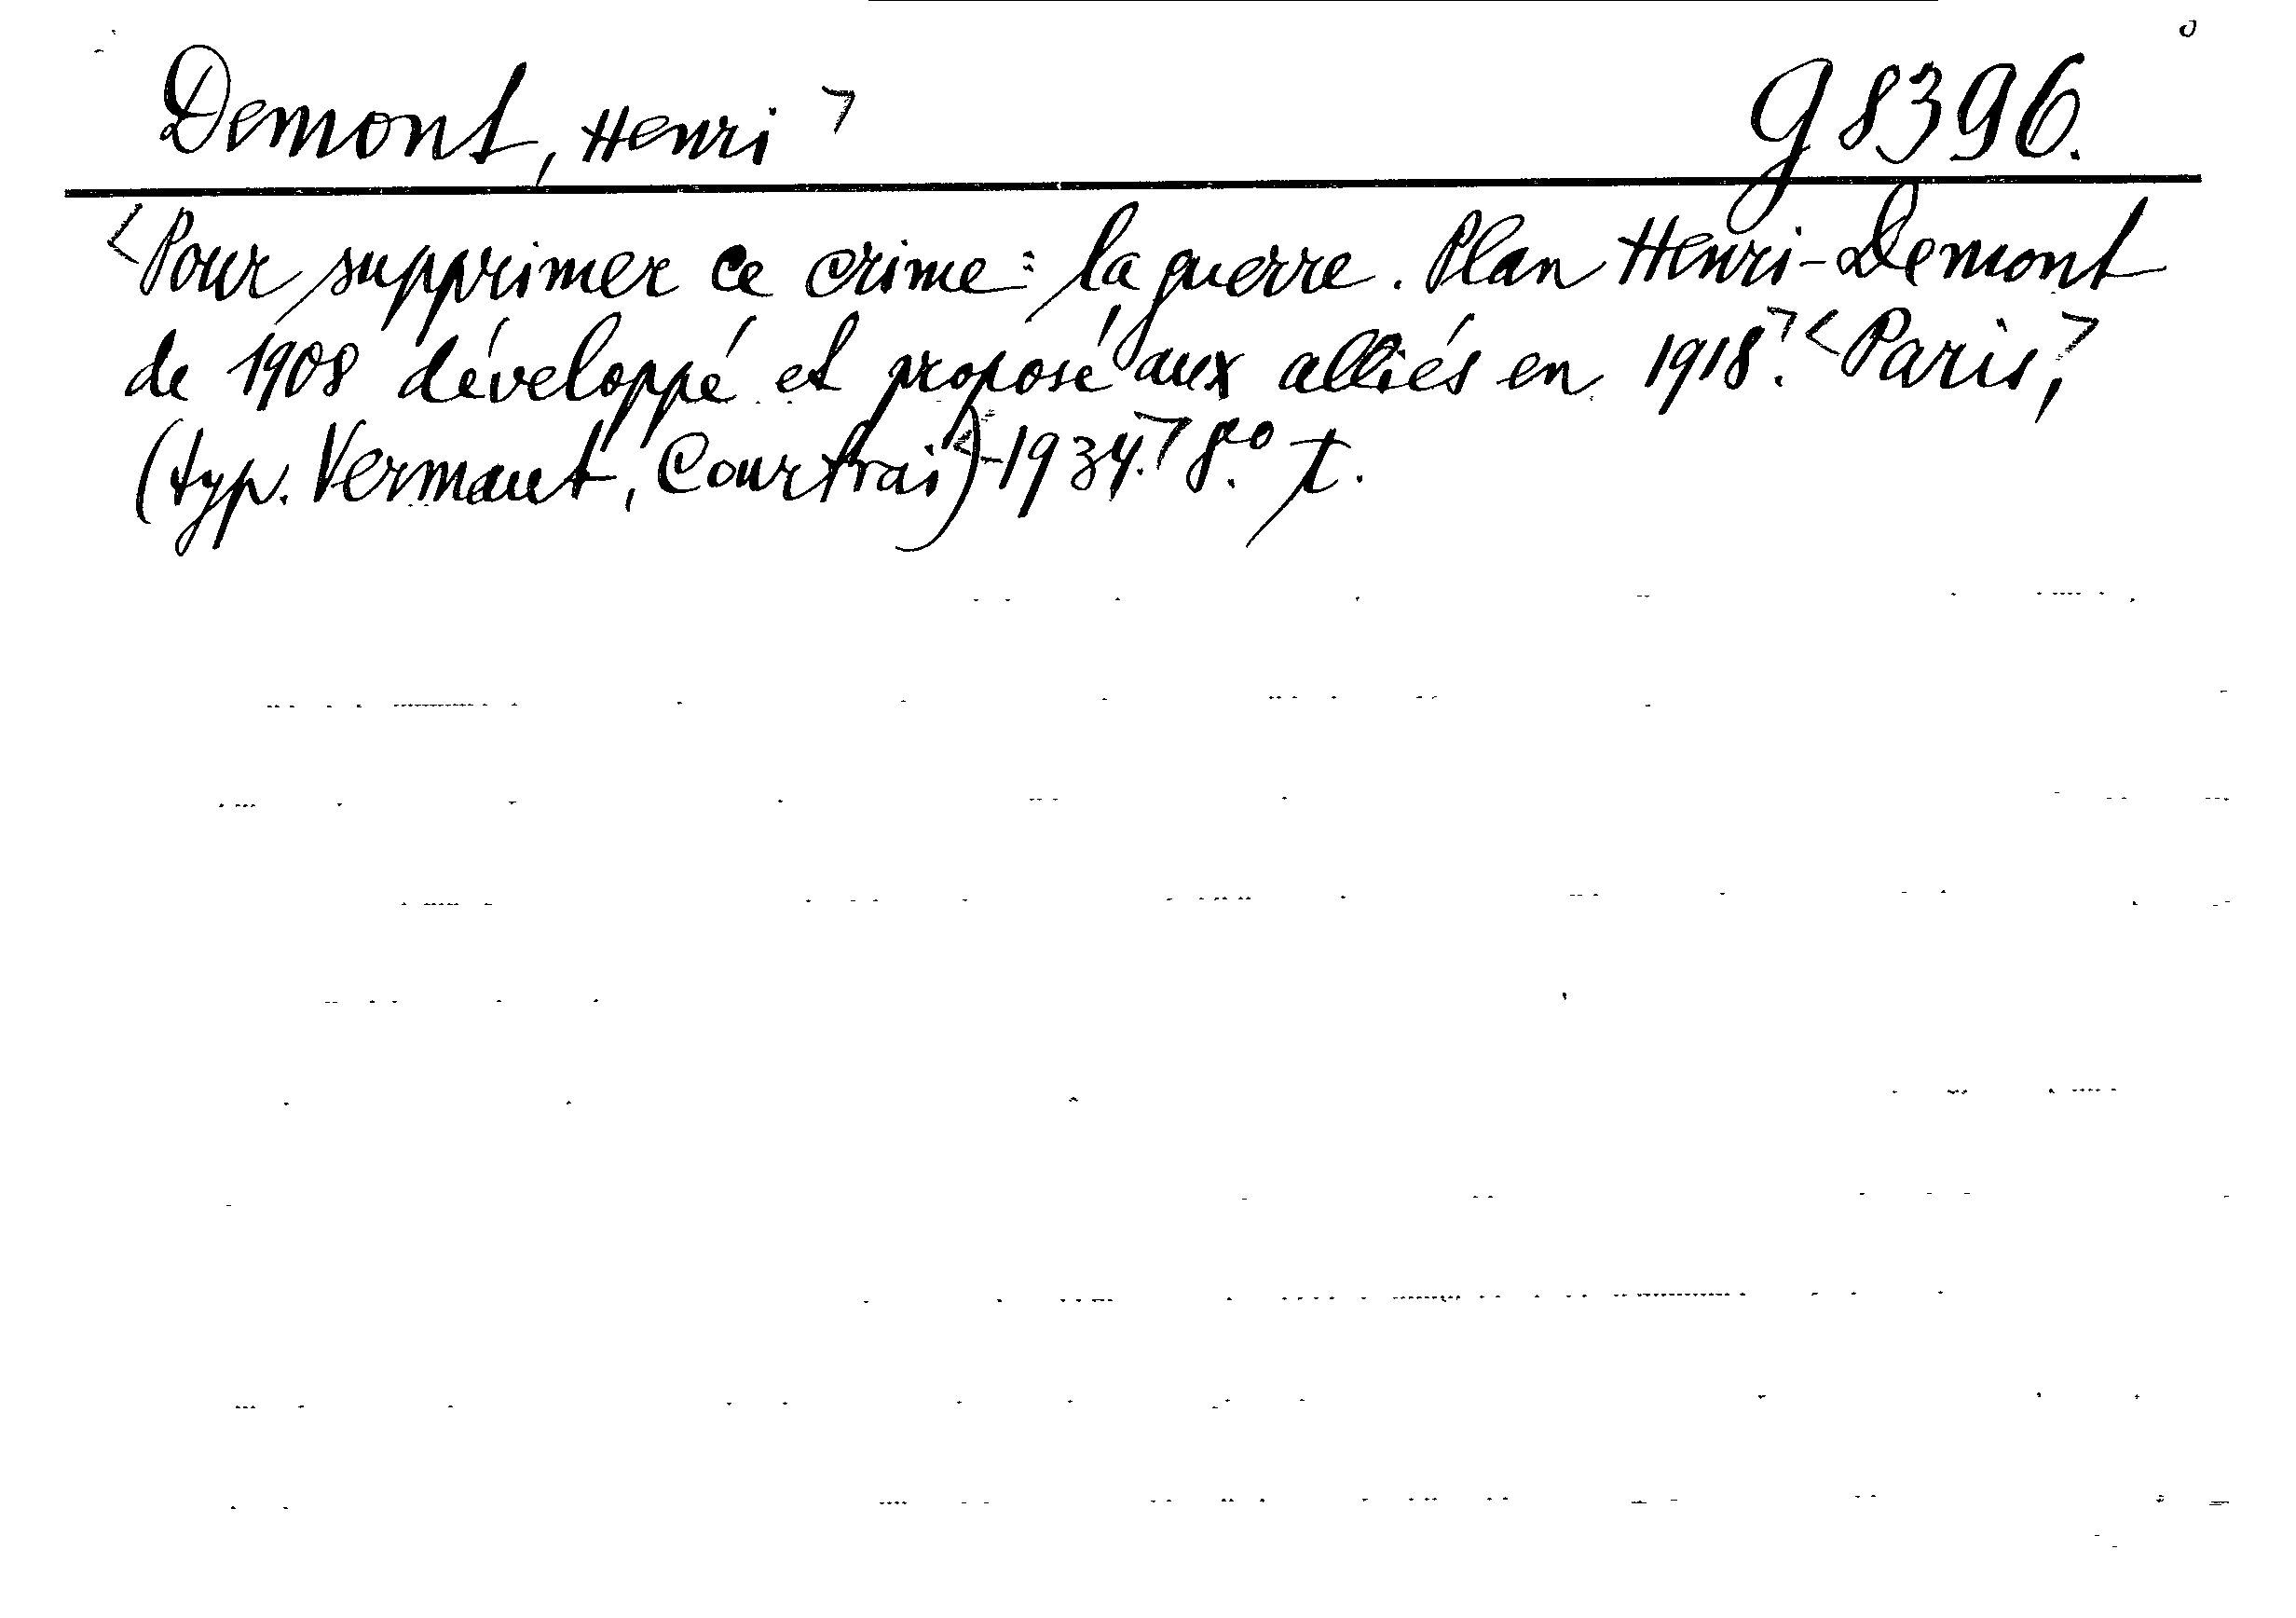 Demont, Henri> g 8396.
<Pour supprimer ce crime: la guerre. Plan Henri-Demont
de 1908 développé et proposé aux alliés en 1918.> <Paris,>
(typ. Vermaut, Courtrai) <1934.> 8.º t.